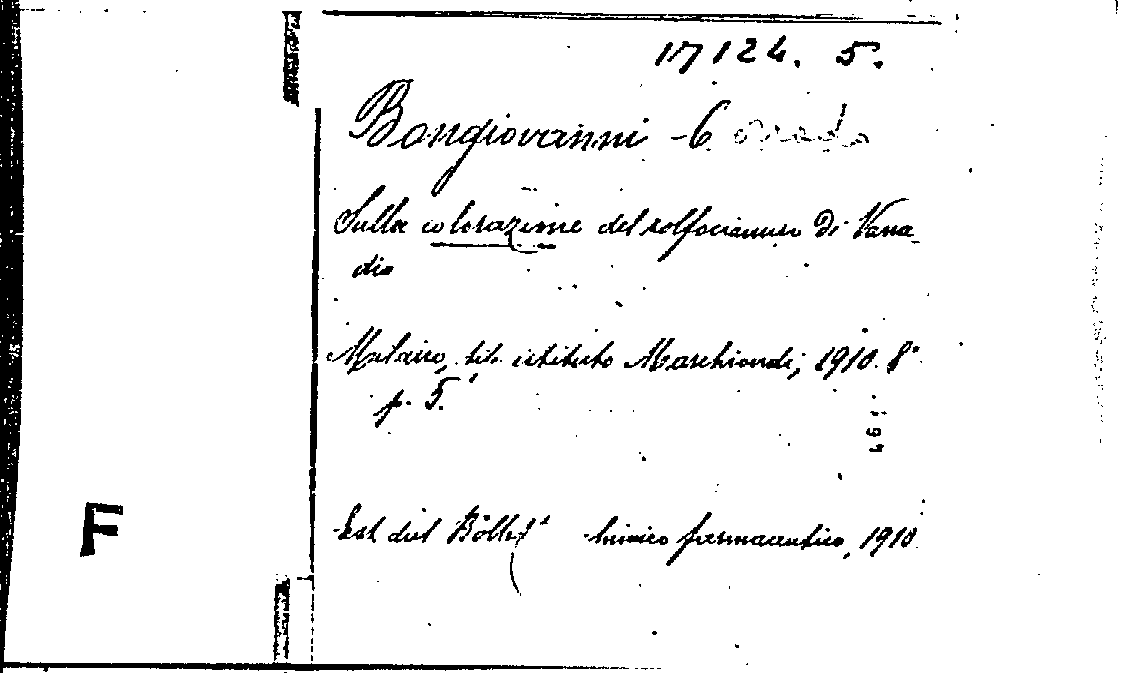 17124. 5.
Bongiovanni C orrado
Sulla colorazione del solfocianuro di Vana-
dio
Milano, tit. istituto Marchiondi, 1910. 8°
p. 5.
461
F
Est. dal Bollet. chimico farmaceutico, 1910